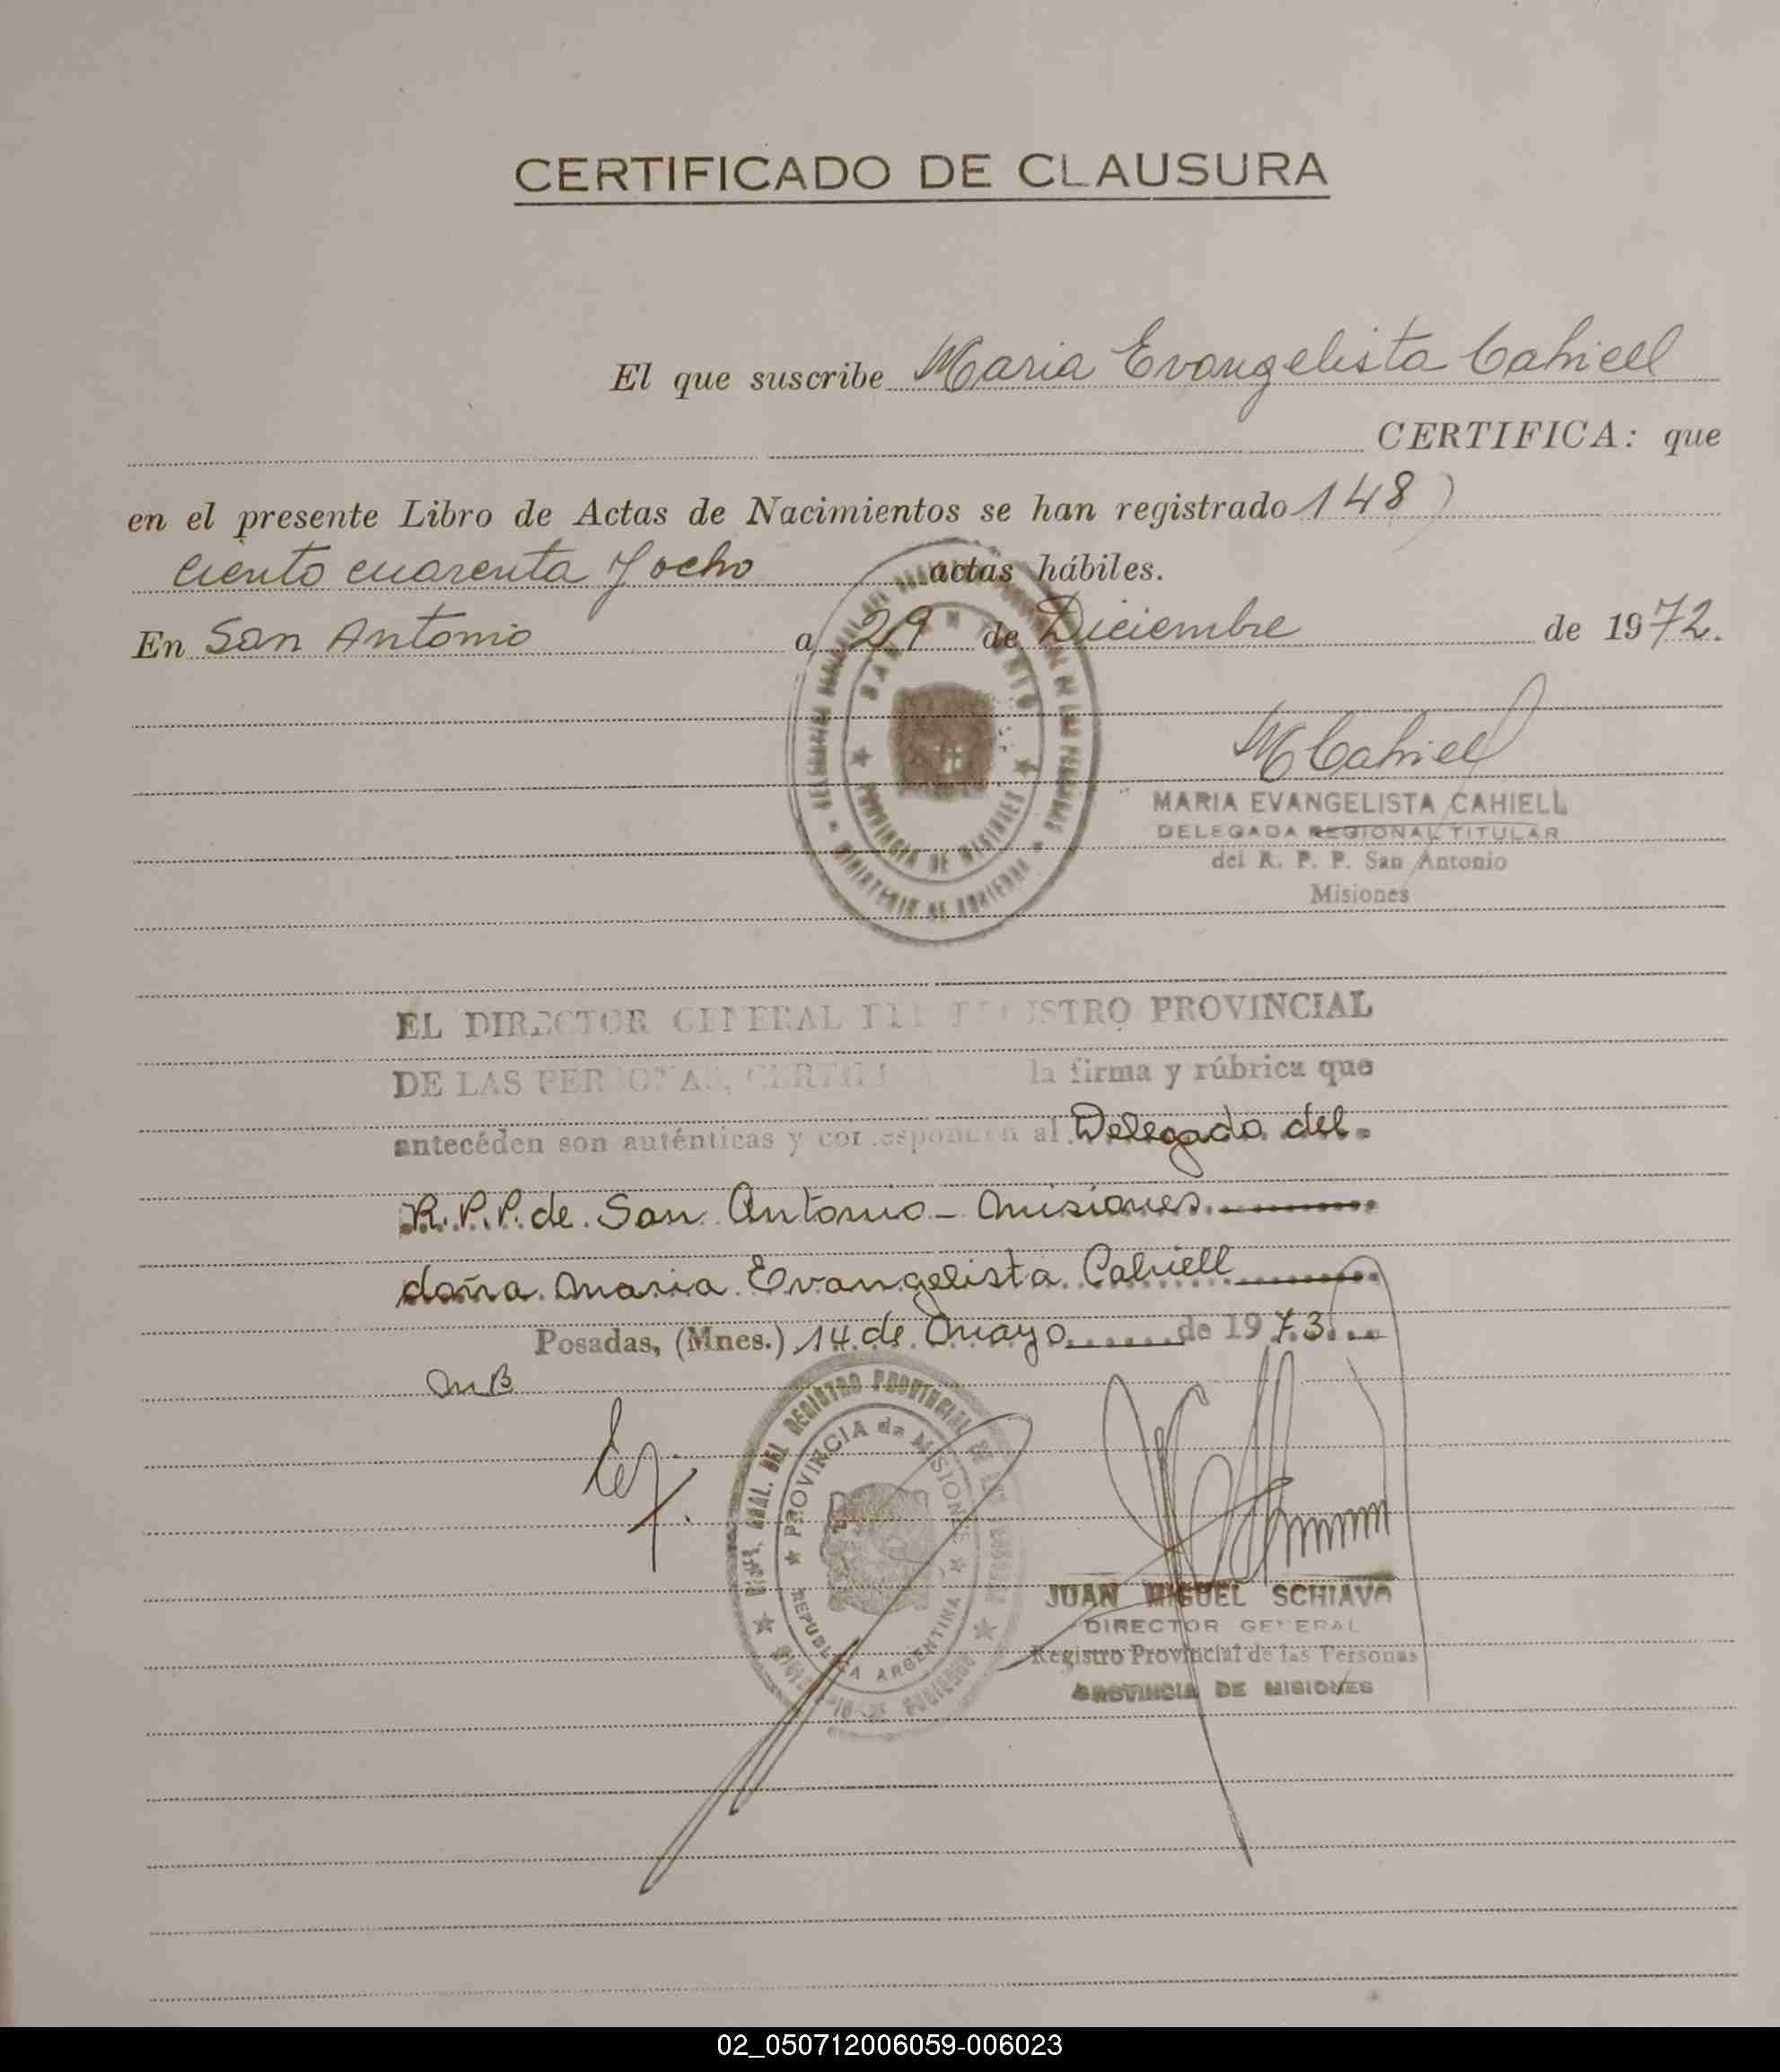 CERTIFICADO DE CLAUSURA
El que suscribe Maria Evangelista Cahiell
CERTIFICA: que
en el presente Libro de Actas de Nacimientos se han registrado 148)
Ciento cuarenta y ocho actas hábiles.
En San Antonio a 29 de Diciembre de 1972.
M Cahiell
MARIA EVANGELISTA CAHIELL
DELEGADA REGIONAL TITULAR
del R. P. P. San Antonio
Misiones
SAN ANTONIO
PROVINCIA DE MISIONES
MINISTERIO DE GOBIERNO
EL DIRECTOR GENERAL DEL REGISTRO PROVINCIAL
DE LAS PERSONAS, CERTIFICA la firma y rúbrica que
antecéden son auténticas y corresponden al Delegado del
R.P.P. de San Antonio - Misiones
doña Maria Evangelista Cahiell
Posadas, (Mnes.) 14 de Mayo de 1973
MB
GRAL. DEL REGISTRO PROVINCIAL DE LAS PERSONAS
PROVINCIA de MISIONES
REPUBLICA ARGENTINA
JUAN MIGUEL SCHIAVO
DIRECTOR GENERAL
Registro Provincial de las Personas
PROVINCIA DE MISIONES
02_050712006059-006023